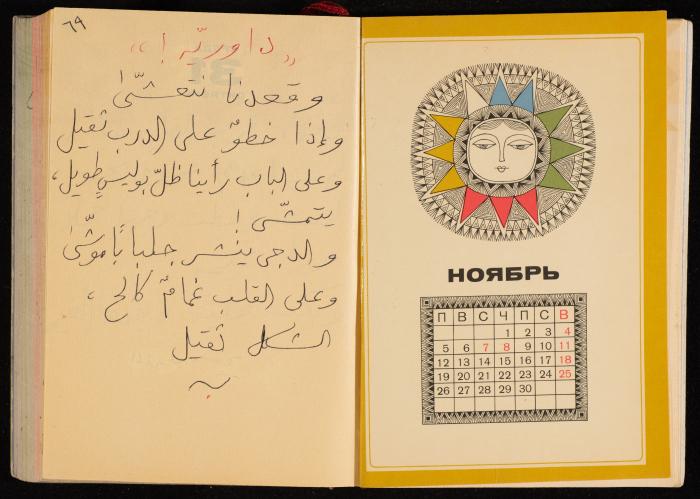 ٦٩
« داوريّه ! »
وقعدنا نتعشّى
وإذا خطوٌ على الدرب ثقيل
وعلى الباب رأينا ظلّ بوليسٍ طويل،
يتمشّى !
والدجى ينشر جلبابًا موشّى
وعلى القلب غمامٌ كالح ،
الشكل ثقيل
НОЯБРЬ
П В С Ч П С В
1 2 3 4
5 6 7 8 9 10 11
12 13 14 15 16 17 18
19 20 21 22 23 24 25
26 27 28 29 30